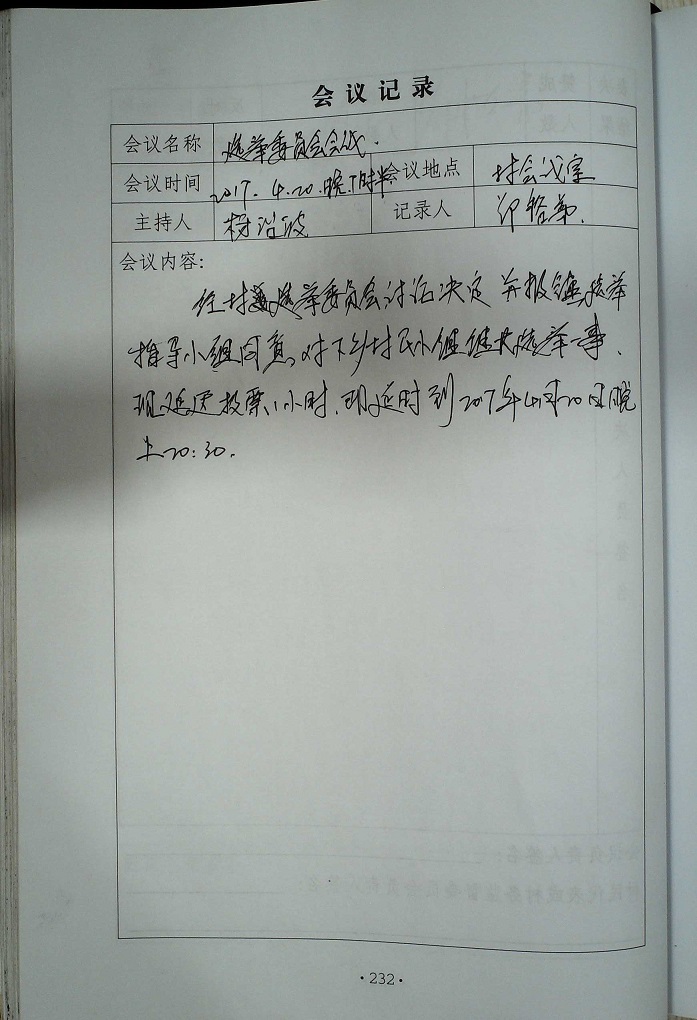 会议记录
会议名称 选举委员会会议.
会议时间 2017.4.20.晚7时半 会议地点 村会议室
主持人 杨沿波 记录人
会议内容:
经村选举委员会讨论决定并报镇选举
指导小组同意,对下乡村民小组继续选举一事、
现延迟投票1小时,现延时到2017年4月20日晚
上20:30.
·232·